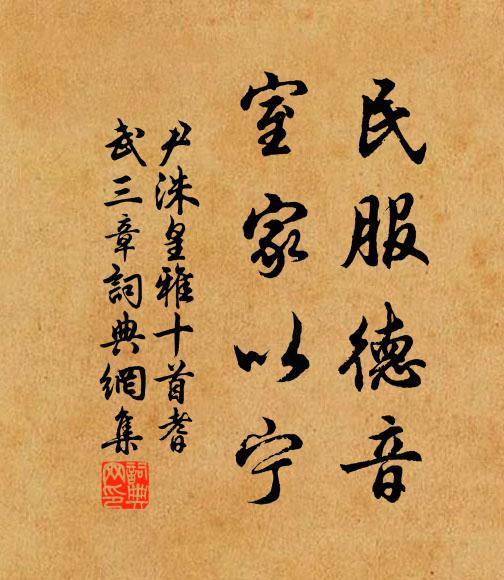 民服德音
室家以宁
尹洙皇雅十首耆
武三章詞典網集
詞典
网印